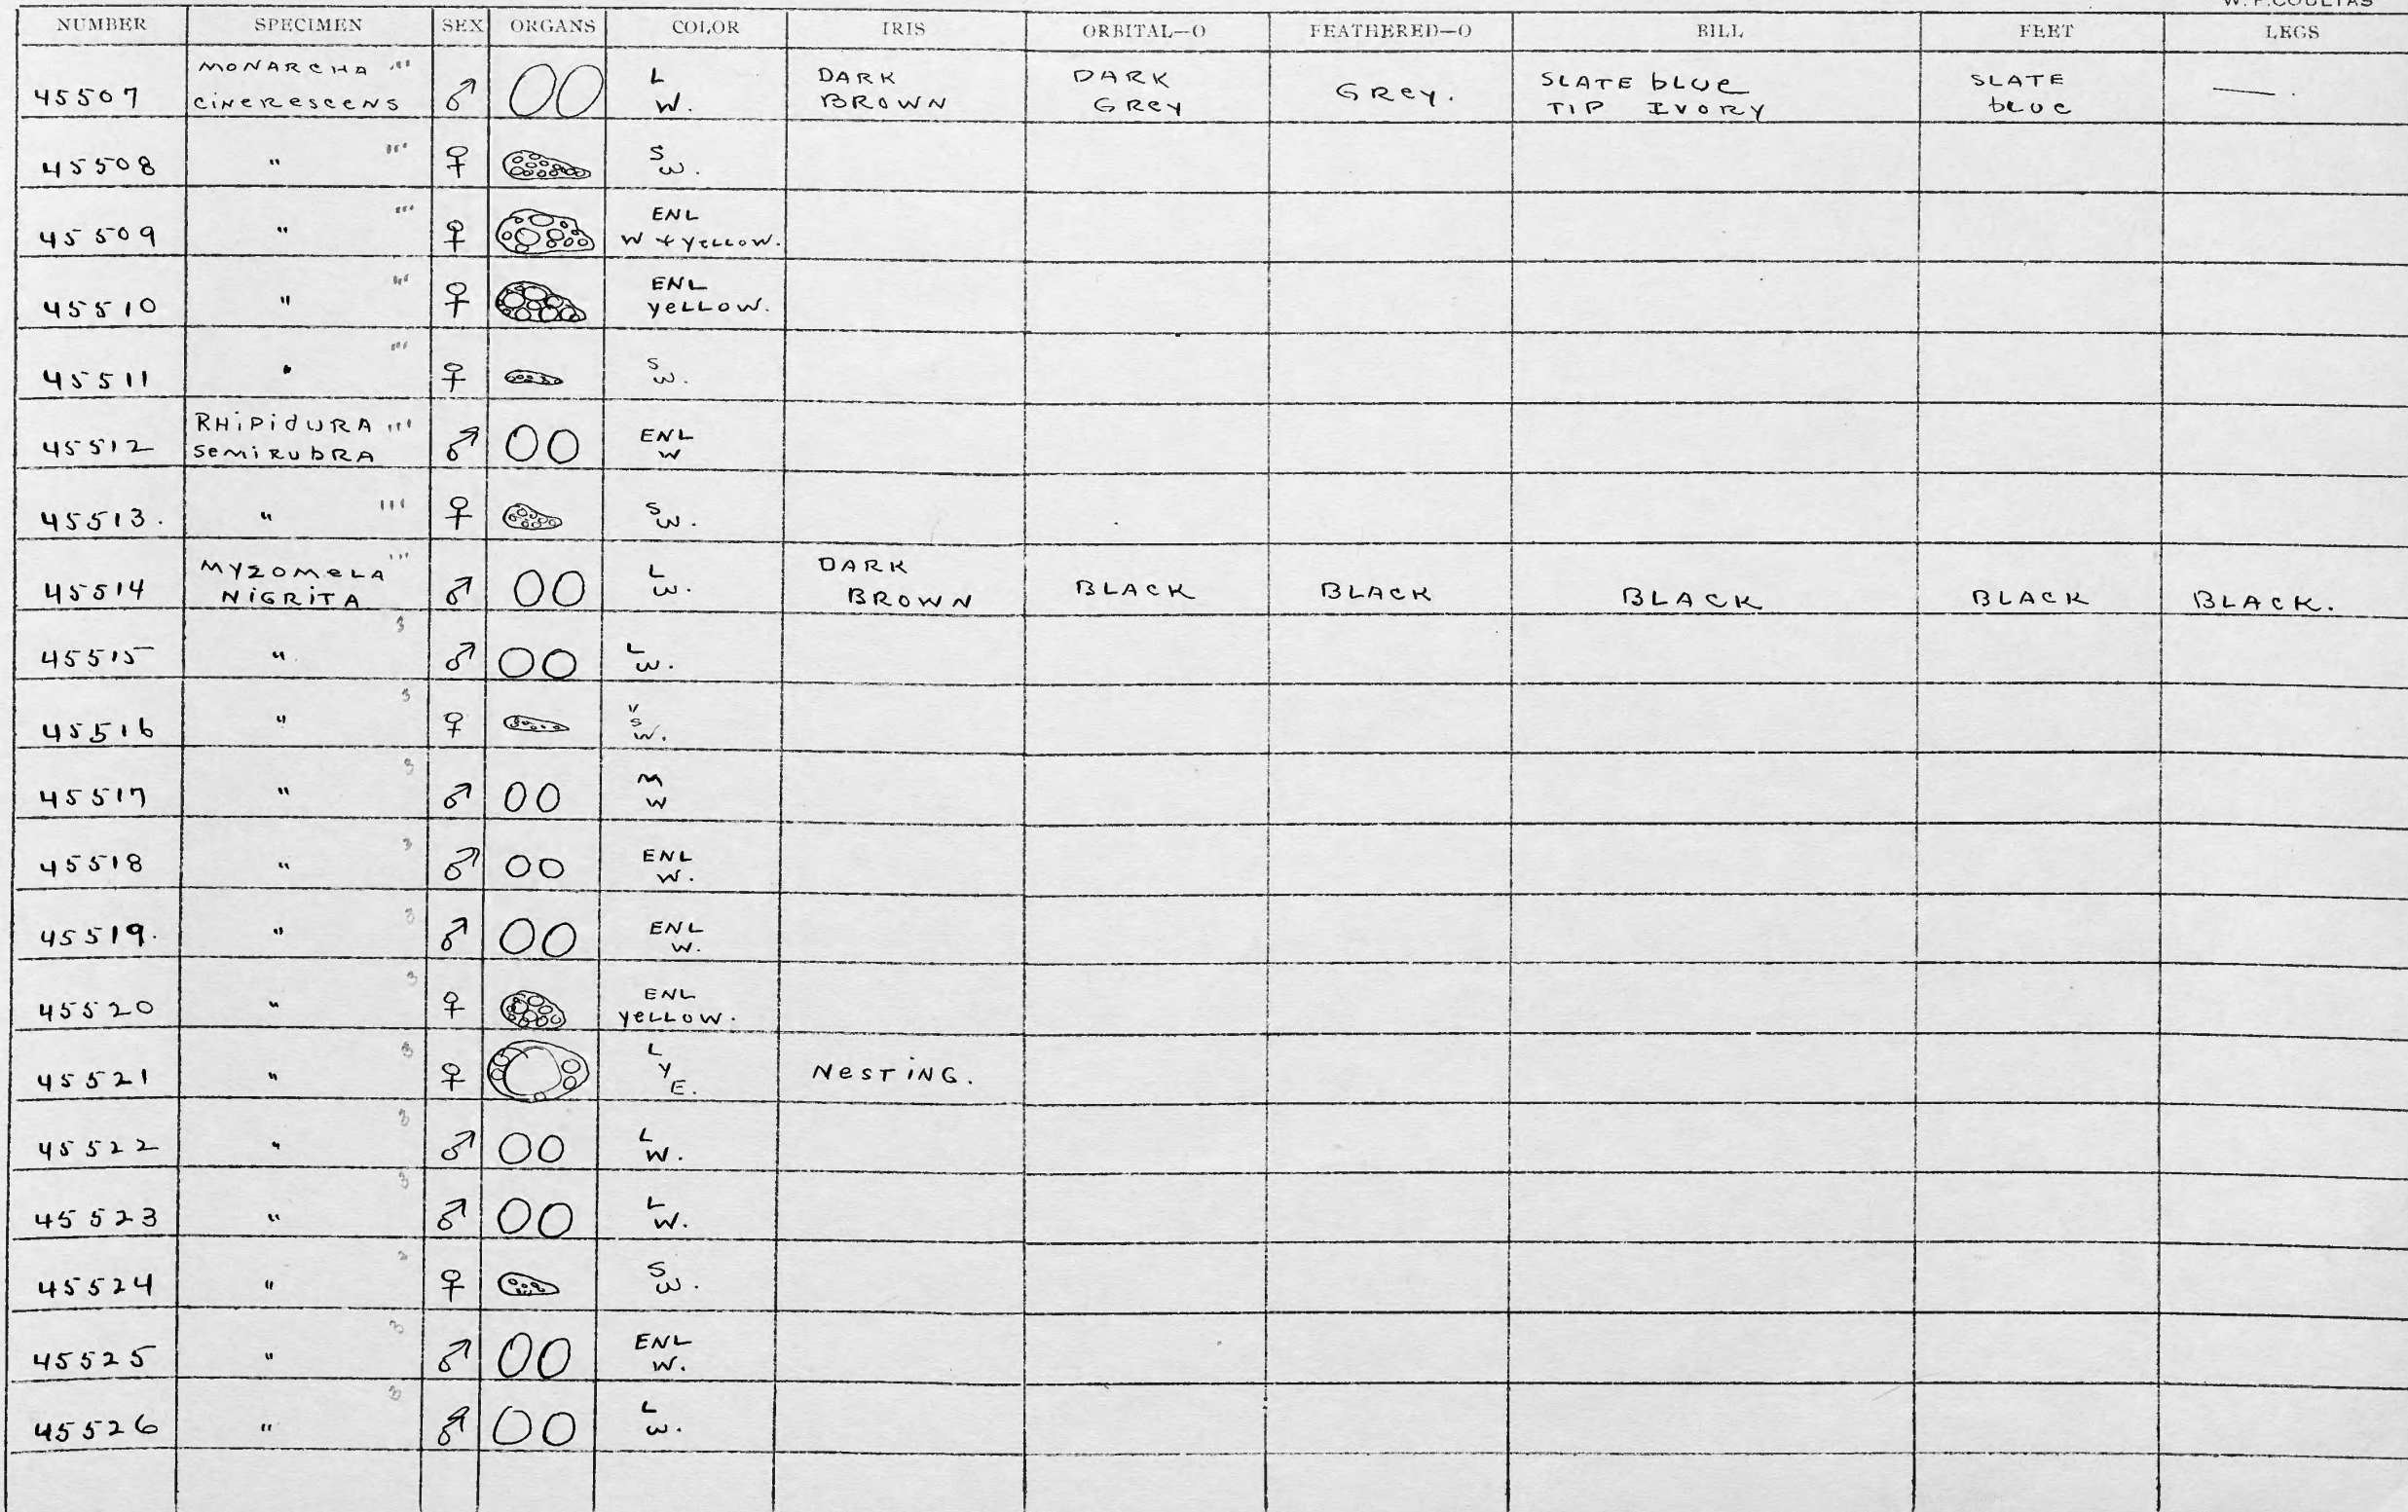 W.F.COULTAS
NUMBER SPECIMEN SEX ORGANS COLOR IRIS ORBITAL—O FEATHERED—O BILL FEET LEGS
45507 MONARCHA ''' cinerescens ♂ L W. DARK BROWN DARK GREY GREY. SLATE blue TIP IVORY SLATE blue —.
45508 " ''' ♀ S W.
45509 " ''' ♀ ENL W + yellow.
45510 " ''' ♀ ENL yellow.
45511 " ''' ♀ S W.
45512 RHIPIDURA ''' semirubra ♂ ENL W
45513. " ''' ♀ S W.
45514 MYZOMELA ''' NIGRITA ♂ L W. DARK BROWN BLACK BLACK BLACK BLACK BLACK.
45515 " 3 ♂ L W.
45516 " 3 ♀ V S W.
45517 " 3 ♂ M W
45518 " 3 ♂ ENL W.
45519. " 3 ♂ ENL W.
45520 " 3 ♀ ENL yellow.
45521 " 3 ♀ L Y E. NESTING.
45522 " 3 ♂ L W.
45523 " 3 ♂ L W.
45524 " 3 ♀ S W.
45525 " 3 ♂ ENL W.
45526 " 3 ♂ L W.